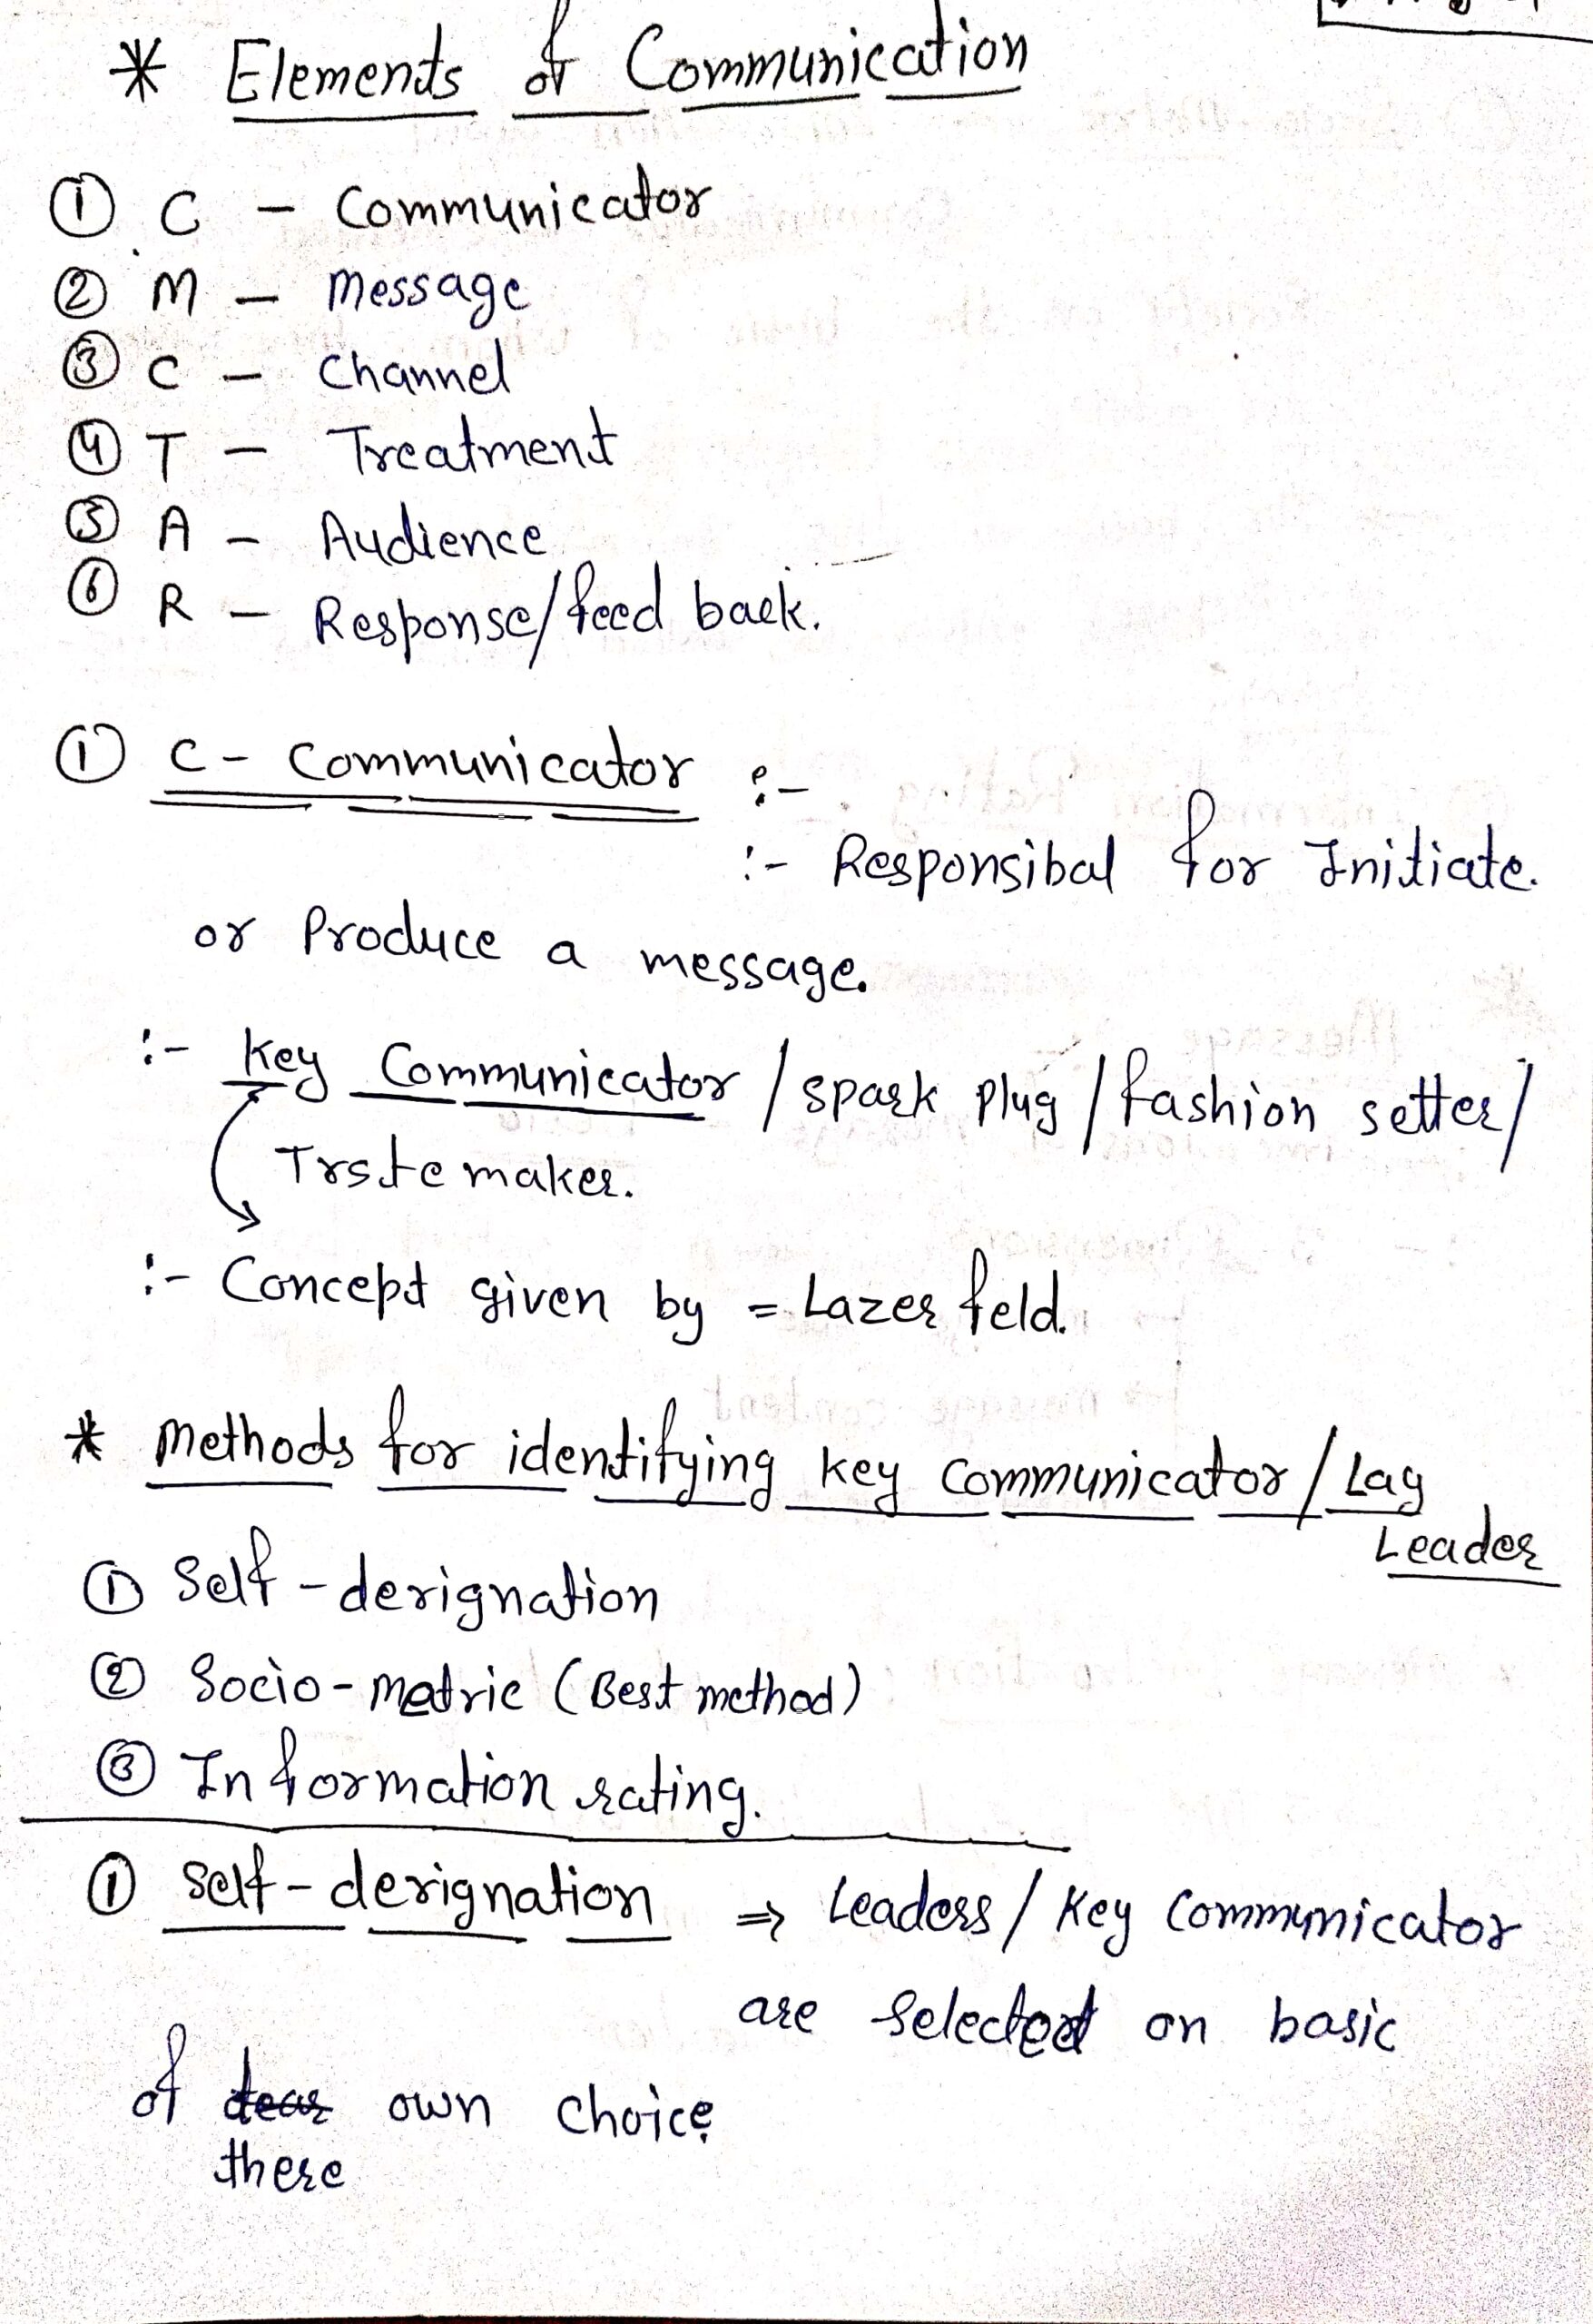 * Elements of Communication
① C - Communicator
② M - Message
③ C - Channel
④ T - Treatment
⑤ A - Audience
⑥ R - Response/feed back.
① C - Communicator :-
:- Responsibal for Initiate.
or Produce a message.
:- Key Communicator / spark plug / fashion setter/
Trste maker.
:- Concept given by = Lazer feld.
* Methods for identifying key Communicator / Lag
Leader
① Self - derignation
② Socio - metric (Best method)
③ Information rating.
① Self - derignation ⇒ Leaders / Key Communicator
are Selected on basic
of there own choice